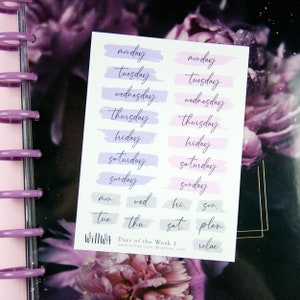 monday monday
tuesday tuesday
wednesday wednesday
thursday thursday
friday friday
saturday saturday
sunday sunday
mon wed fri sun
tue thu sat plan
relax
Days of the Week 1